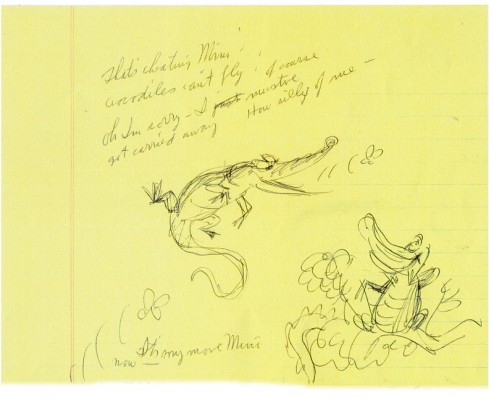 That's cheating Mimi!
crocodiles can't fly! of course
oh I'm sorry - I must've
got carried away How silly of me -
now It's my move Mimi